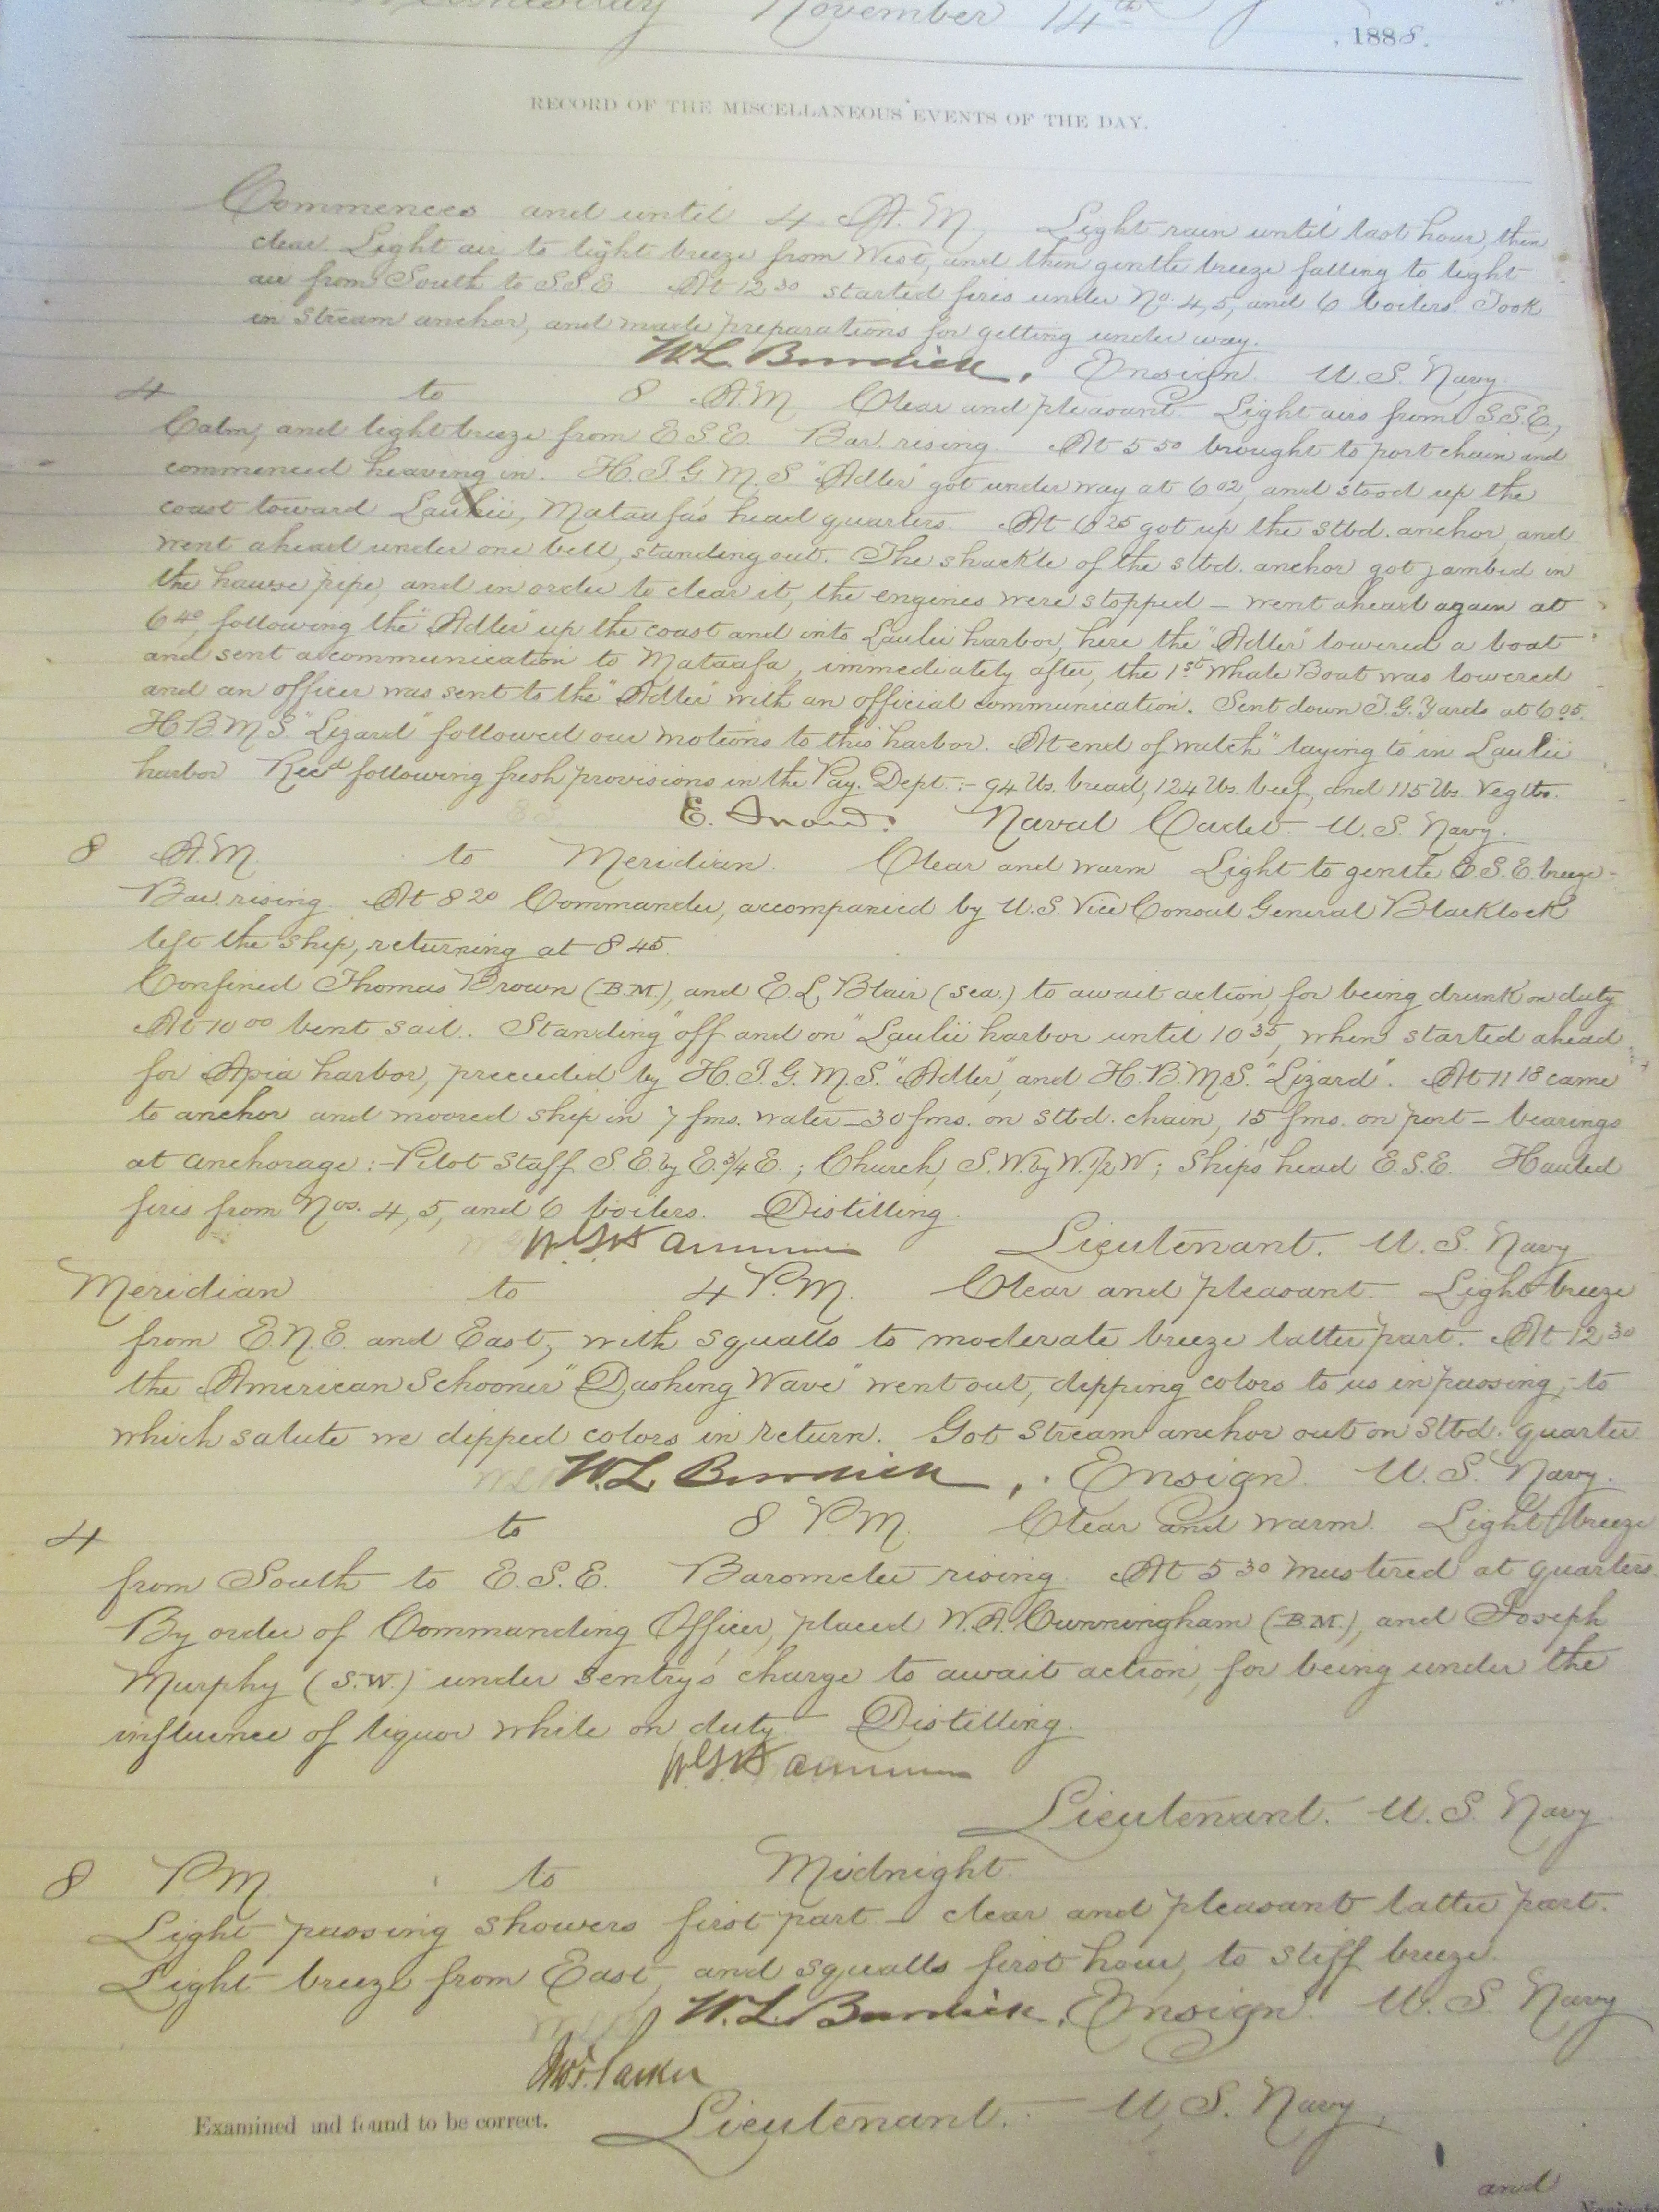 Wednesday November 14th, 1888.
RECORD OF THE MISCELLANEOUS EVENTS OF THE DAY.
Commences and until 4 A.M. Light rain until last hour, then
clear. Light air to light breeze from West, and then gentle breeze falling to light
air from South to S.S.E. At 12 30 started fires under No. 4, 5, and 6 boilers. Took
in stream anchor, and made preparations for getting under way.
W.L. Burdick, Ensign. U.S. Navy.
4 to 8 A.M. Clear and pleasant. Light airs from S.S.E.,
Calm, and light breeze from E.S.E. Bar. rising. At 5 50 brought to port chain and
commenced heaving in. H.I.G.M.S "Adler" got under way at 6 02, and stood up the
coast toward Laulii, Mataafa's head quarters. At 6 25 got up the stbd. anchor, and
went ahead under one bell, standing out. The shackle of the stbd. anchor got jambed in
the hawse pipe, and in order to clear it, the engines were stopped — went ahead again at
6 40, following the "Adler" up the coast and into Laulii harbor, here the "Adler" lowered a boat
and sent a communication to Mataafa, immediately after, the 1st Whale Boat was lowered
and an officer was sent to the "Adler" with an official communication. Sent down T.G. Yards at 6 05.
H.B.M.S. "Lizard" followed our motions to this harbor. At end of watch "laying to" in Laulii
harbor Recd following fresh provisions in the Pay. Dept.:- 94 lbs. bread, 124 lbs. beef, and 115 lbs. Vegtbs.
E. Naval Cadet. U.S. Navy.
8 A.M. to Meridian. Clear and warm Light to gentle E.S.E. breeze-
Bar. rising. At 8 20 Commander, accompanied by U.S. Vice Consul General Blacklock
left the ship, returning at 8 45.
Confined Thomas Brown (B.M.), and E.L. Blair (Sea.) to await action, for being drunk on duty.
At 10 00 bent sail. Standing "off and on" Laulii harbor until 10 35, when started ahead
for Apia harbor, preceeded by H.I.G.M.S. "Adler", and H.B.M.S. "Lizard". At 11 18 came
to anchor and moored ship in 7 fms. water — 30 fms. on stbd. chain, 15 fms. on port — bearings
at anchorage:- Pilot Staff S.E. by E. 3/4 E.; Church, S.W. by W. 1/2 W; Ship's head E.S.E. Hauled
fires from Nos. 4, 5, and 6 boilers. Distilling.
Lieutenant. U.S. Navy
Meridian to 4 P.M. Clear and pleasant. Light breeze
from E.N.E. and East, with squalls to moderate breeze latter part. At 12 30
the American Schooner "Dashing Wave" went out, dipping colors to us in passing, to
which salute we dipped colors in return. Got stream anchor out on stbd. quarter
W.L. Burdick, Ensign. U.S. Navy.
4 to 8 P.M. Clear and warm. Light breeze
from South to E.S.E. Barometer rising. At 5 30 mustered at quarters.
By order of Commanding Officer, placed W.A. Cunningham (B.M.), and Joseph
Murphy (S.W.) under sentry's charge to await action, for being under the
influence of liquor while on duty. Distilling.
Lieutenant. U.S. Navy
8 P.M. to Midnight.
Light passing showers first part — clear and pleasant latter part.
Light breeze from East, and squalls first hour, to stiff breeze.
W.L. Burdick, Ensign. U.S. Navy
Parker
Examined and found to be correct. Lieutenant. U.S. Navy,
and